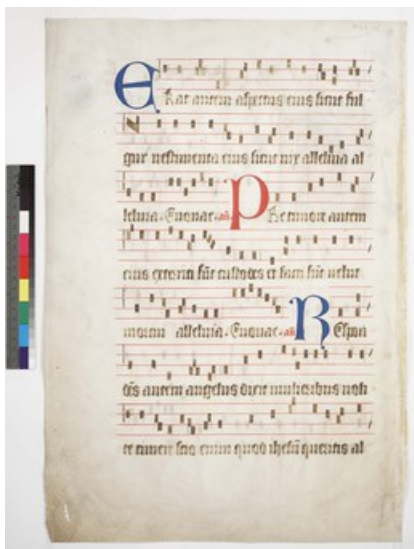 Erat autem aspectus eius sicut ful
gur vestimenta eius sicut nix alleluia al
leluia. Euouae. añ. Pre timore autem
eius exterriti sũt custodes et facti sũt velut
mortui allelvia. Euouae. añ. Respon
dẽs autem angelus dixit mulieribus noli
te timere scio enim quod ihesũ queritis al